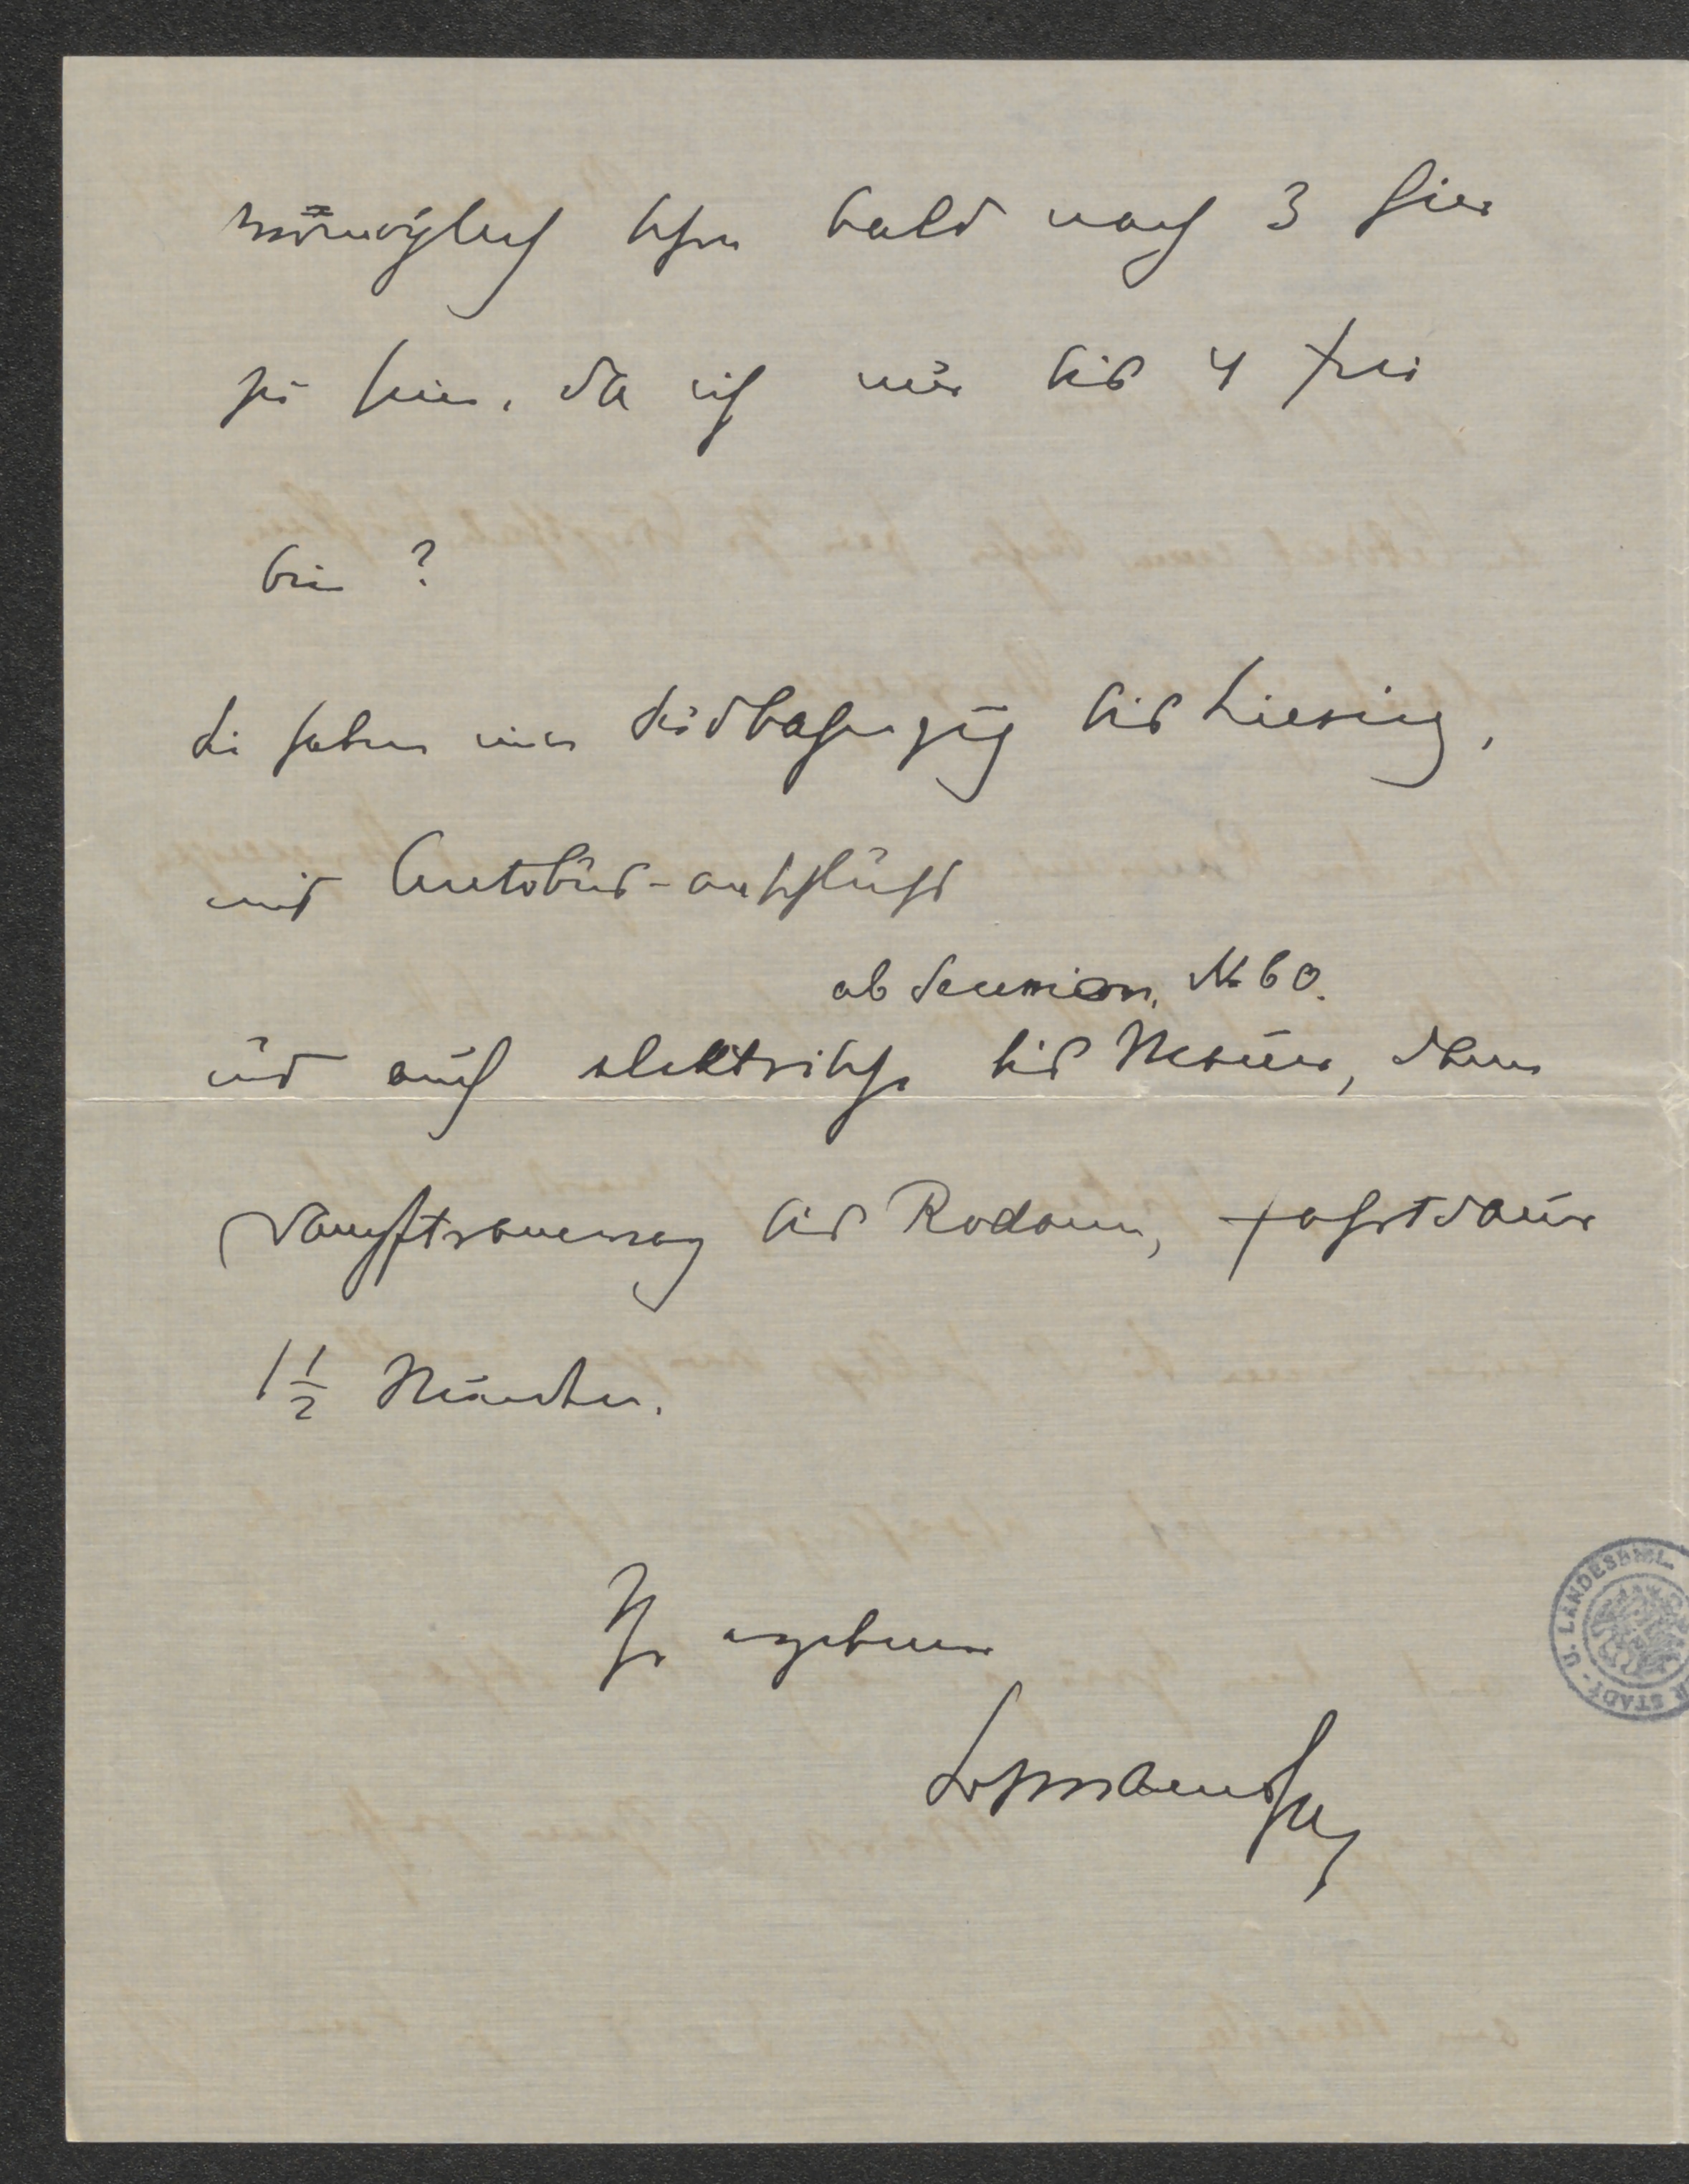 womöglich schon bald nach 3 hier
zu sein, da ich nur bis 4 frei
bin?
Sie haben einen Südbahnzug bis Liesing,
mit Autobus-anschluss
ab Secession, No 60.
und auch elektrische bis Mauer, dann
Dampftramway bis Rodaun, Fahrtdauer
1 1/2 Stunden.
Ihr ergebener
Hofmannsthal
U. LANDESBIBL.
R STADT-